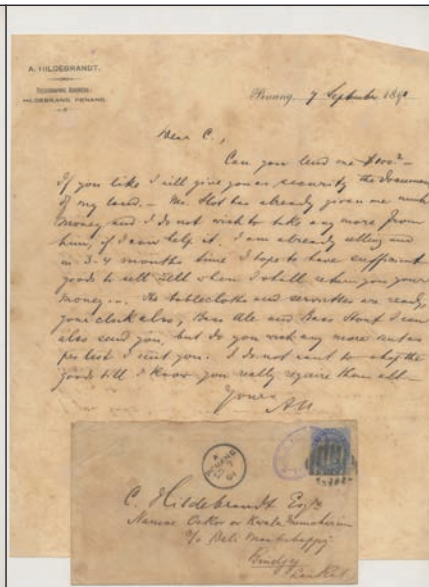 A. HILDEBRANDT.
TELEGRAPHIC ADDRESS:
HILDEBRAND, PENANG.
Penang, 7 September 189
Dear C.,
Can you lend me $100.–
If you like I will give you as security the documents
of my land. – Mr. Hot has already given me much
money and I do not wish to take any more from
him, if I can help it. I am already selling and
in 3-4 months time I hope to have sufficient
goods to sell well when I shall return you your
money... The tablecloths and serviettes are ready,
your clock also, Bass Ale and Bass Stout I can
also send you, but do you wish any more
per list I sent you. I do not want to ship the
goods till I know you really require them all –
Yours
AH
PENANG
C. Hildebrandt Esq
Namoe or Kwala
c/o Deli
Bindjey
Langkat